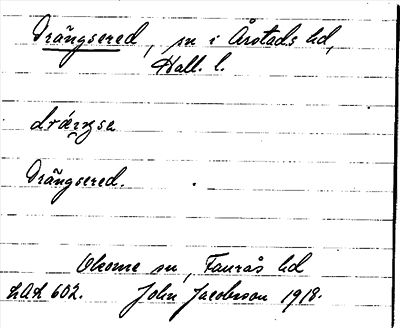 Drängsered, sn i Årstads hd,
Hall. l.
Drängsered.
Okome sn, Faurås hd
LAL 602. John Jacobsson 1918.